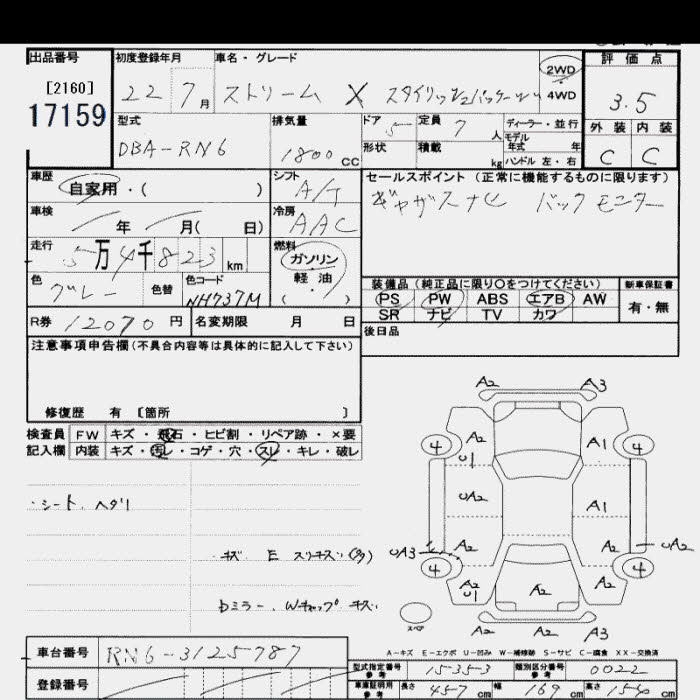 出品番号
[2160]
17159
初度登録年月 車名・グレード
22 7月 ストリーム X スタイリッシュパッケージ
2WD
4WD
評価点
3.5
外装 内装
C C
型式
DBA-RN6
排気量
1800 CC
ドア 5 定員 7人
形状 積載 kg
ディーラー・並行
モデル年式 年
ハンドル 左・右
車歴
自家用・( )
シフト
A/T
セールスポイント(正常に機能するものに限ります)
ギャザズナビ バックモニター
車検
年 月( 日)
冷房
AAC
走行
5万4千823 km
燃料
ガソリン
軽油
・
( )
色
グレー
色替
色コード
NH737M
装備品(純正品に限り○をつけてください)
PS PW ABS エアB AW
SR ナビ TV カワ
新車保証書
有・無
R券 12070円 名変期限 月 日
後日品
注意事項申告欄(不具合内容等は具体的に記入して下さい)
修復歴 有 〔箇所 〕
検査員記入欄
FW キズ・飛石・ヒビ割・リペア跡・×要
内装 キズ・汚レ・コゲ・穴・スレ・キレ・破レ
・シート ヘタリ
キズ E スリキズ(多)
Dミラー Wキャップ キズ
A2 A3
4 A2 A1 4
U1
UA2 A1
UA3 A2 A2 UA2
4 4
A2 A2 A2
U1
スペア
A2 A2 A3
A-キズ E-エクボ U-凹み W-補修跡 S-サビ C-腐食 XX-交換済
車台番号 RN6-3125787
登録番号
型式指定番号 参考 15353 類別区分番号 参考 0022
車庫証明用 参考 長さ 457 cm 幅 169 cm 高さ 154 cm